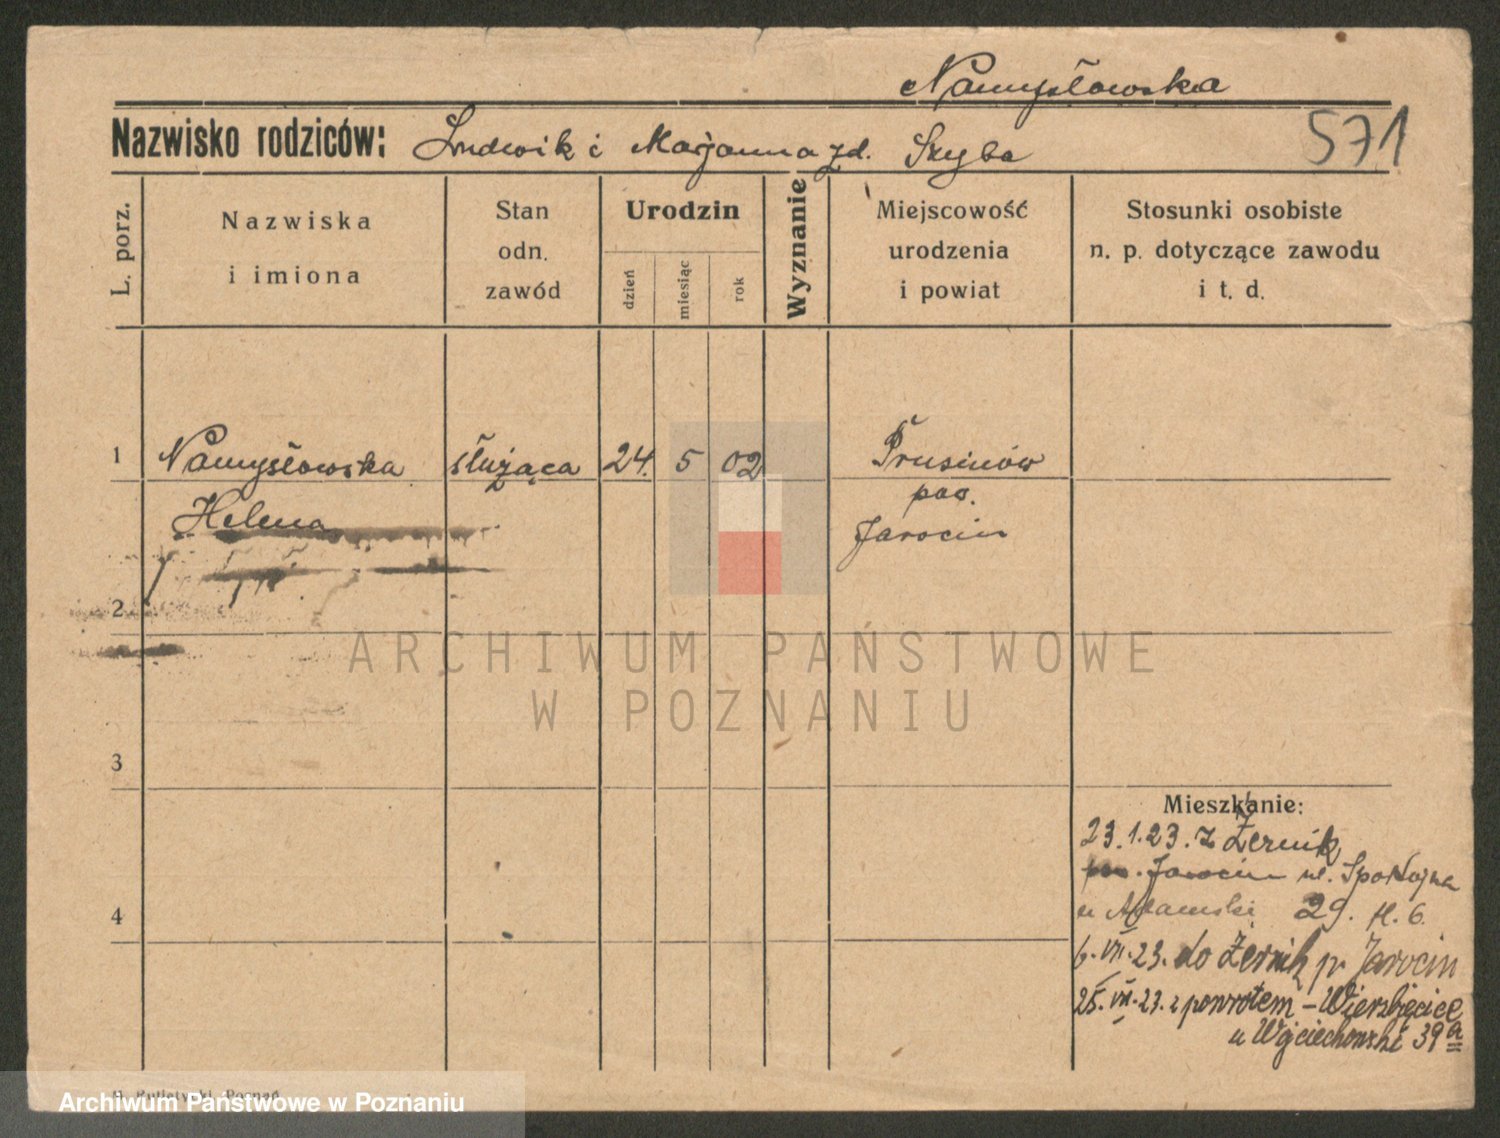 Namysłowska
Nazwisko rodziców: Ludwik i Marjanna zd. Szyba
571
L. porz.
Nazwiska
i imiona
Stan
odn.
zawód
Urodzin
dzień
miesiąc
rok
Wyznanie
Miejscowość
urodzenia
i powiat
Stosunki osobiste
n. p. dotyczące zawodu
i t. d.
1 Namysłowska służąca 24. 5 02 Prusinów
Helena
pow.
Jarocin
2
3
4
Mieszkanie:
23.1.23. z Żernik
pow. Jarocin ul. Spokojna
u Adamski 29. fl. 6.
6.VII.23. do Żernik p. Jarocin
25.VII.23. z powrotem – Wierzbięcice
u Wojciechowski 39a
ARCHIWUM PAŃSTWOWE
W POZNANIU
Poznań
Archiwum Państwowe w Poznaniu